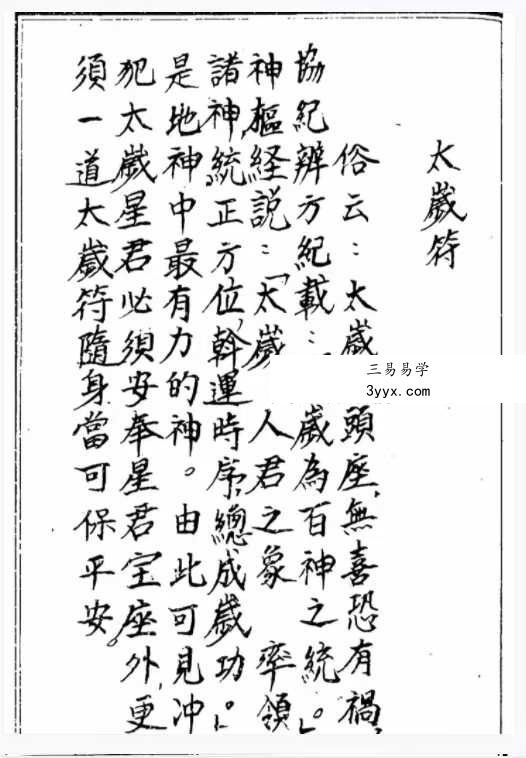 太歲符
俗云：太歲頭座，無喜恐有禍，
協紀辨方紀載：歲為百神之統。」
神樞経説：「太歲人君之象 率領
諸神，統正方位，斡運時序，總成歲功。」
是地神中最有力的神。由此可見冲
犯太歲星君必須安奉星君宝座外，更
須一道太歲符隨身當可保平安。
三易易学
3yyx.com